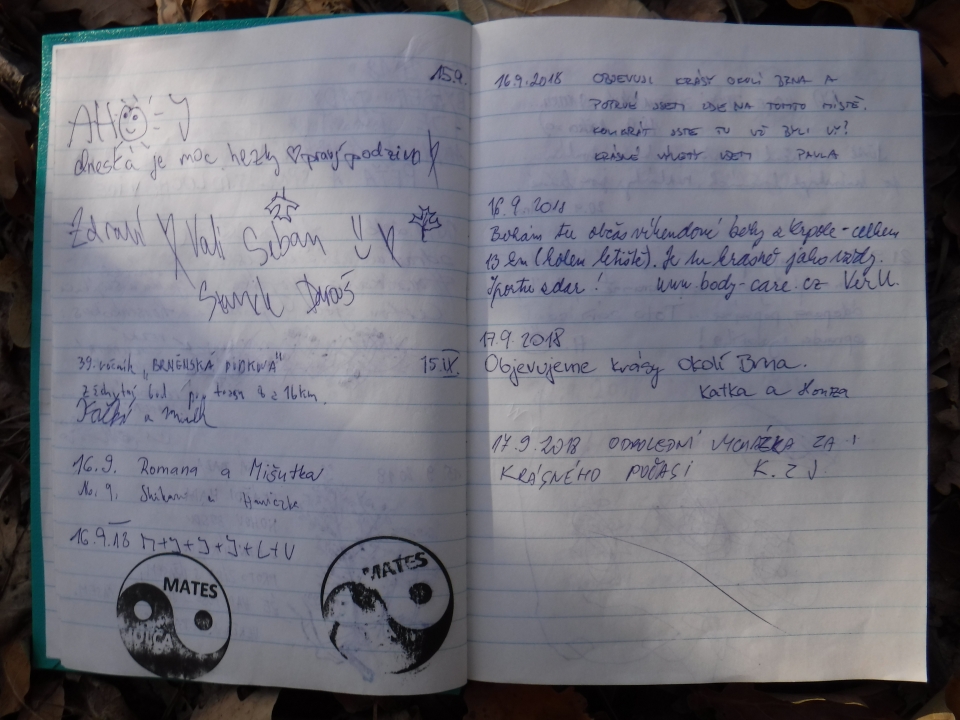 15.9.
AHOJ
dneska je moc hezky pravý podzim
Zdraví Vali Seban
Staněk
39. ročník "BRNĚNSKÁ PODKOVA" 15.IX.
bod trasa 8 z 16km.
a
16.9. Romana a Mišutka
16.9. a Hanička
16.9.18 M+J+J+J+L+V
MATES
MATES
16.9.2018 OBJEVUJI KRÁSY OKOLÍ BRNA A
POPRVÉ JSEM ZDE NA TOMTO MÍSTĚ.
KOLIKRÁT JSTE TU UŽ BYLI VY?
KRÁSNÉ VÝLETY VŠEM PAVLA
16.9.2018
Běhám tu občas víkendové běhy z Bypole - celkem
13 km (kolem letiště). Je tu krásně jako vždy.
Sportu zdar! www.body-care.cz Ver U.
17.9.2018
Objevujeme krásy okolí Brna.
Katka a Honza
17.9.2018 ODPOLEDNÍ VYCHÁZKA ZA
KRÁSNÉHO POČASÍ K. Z J